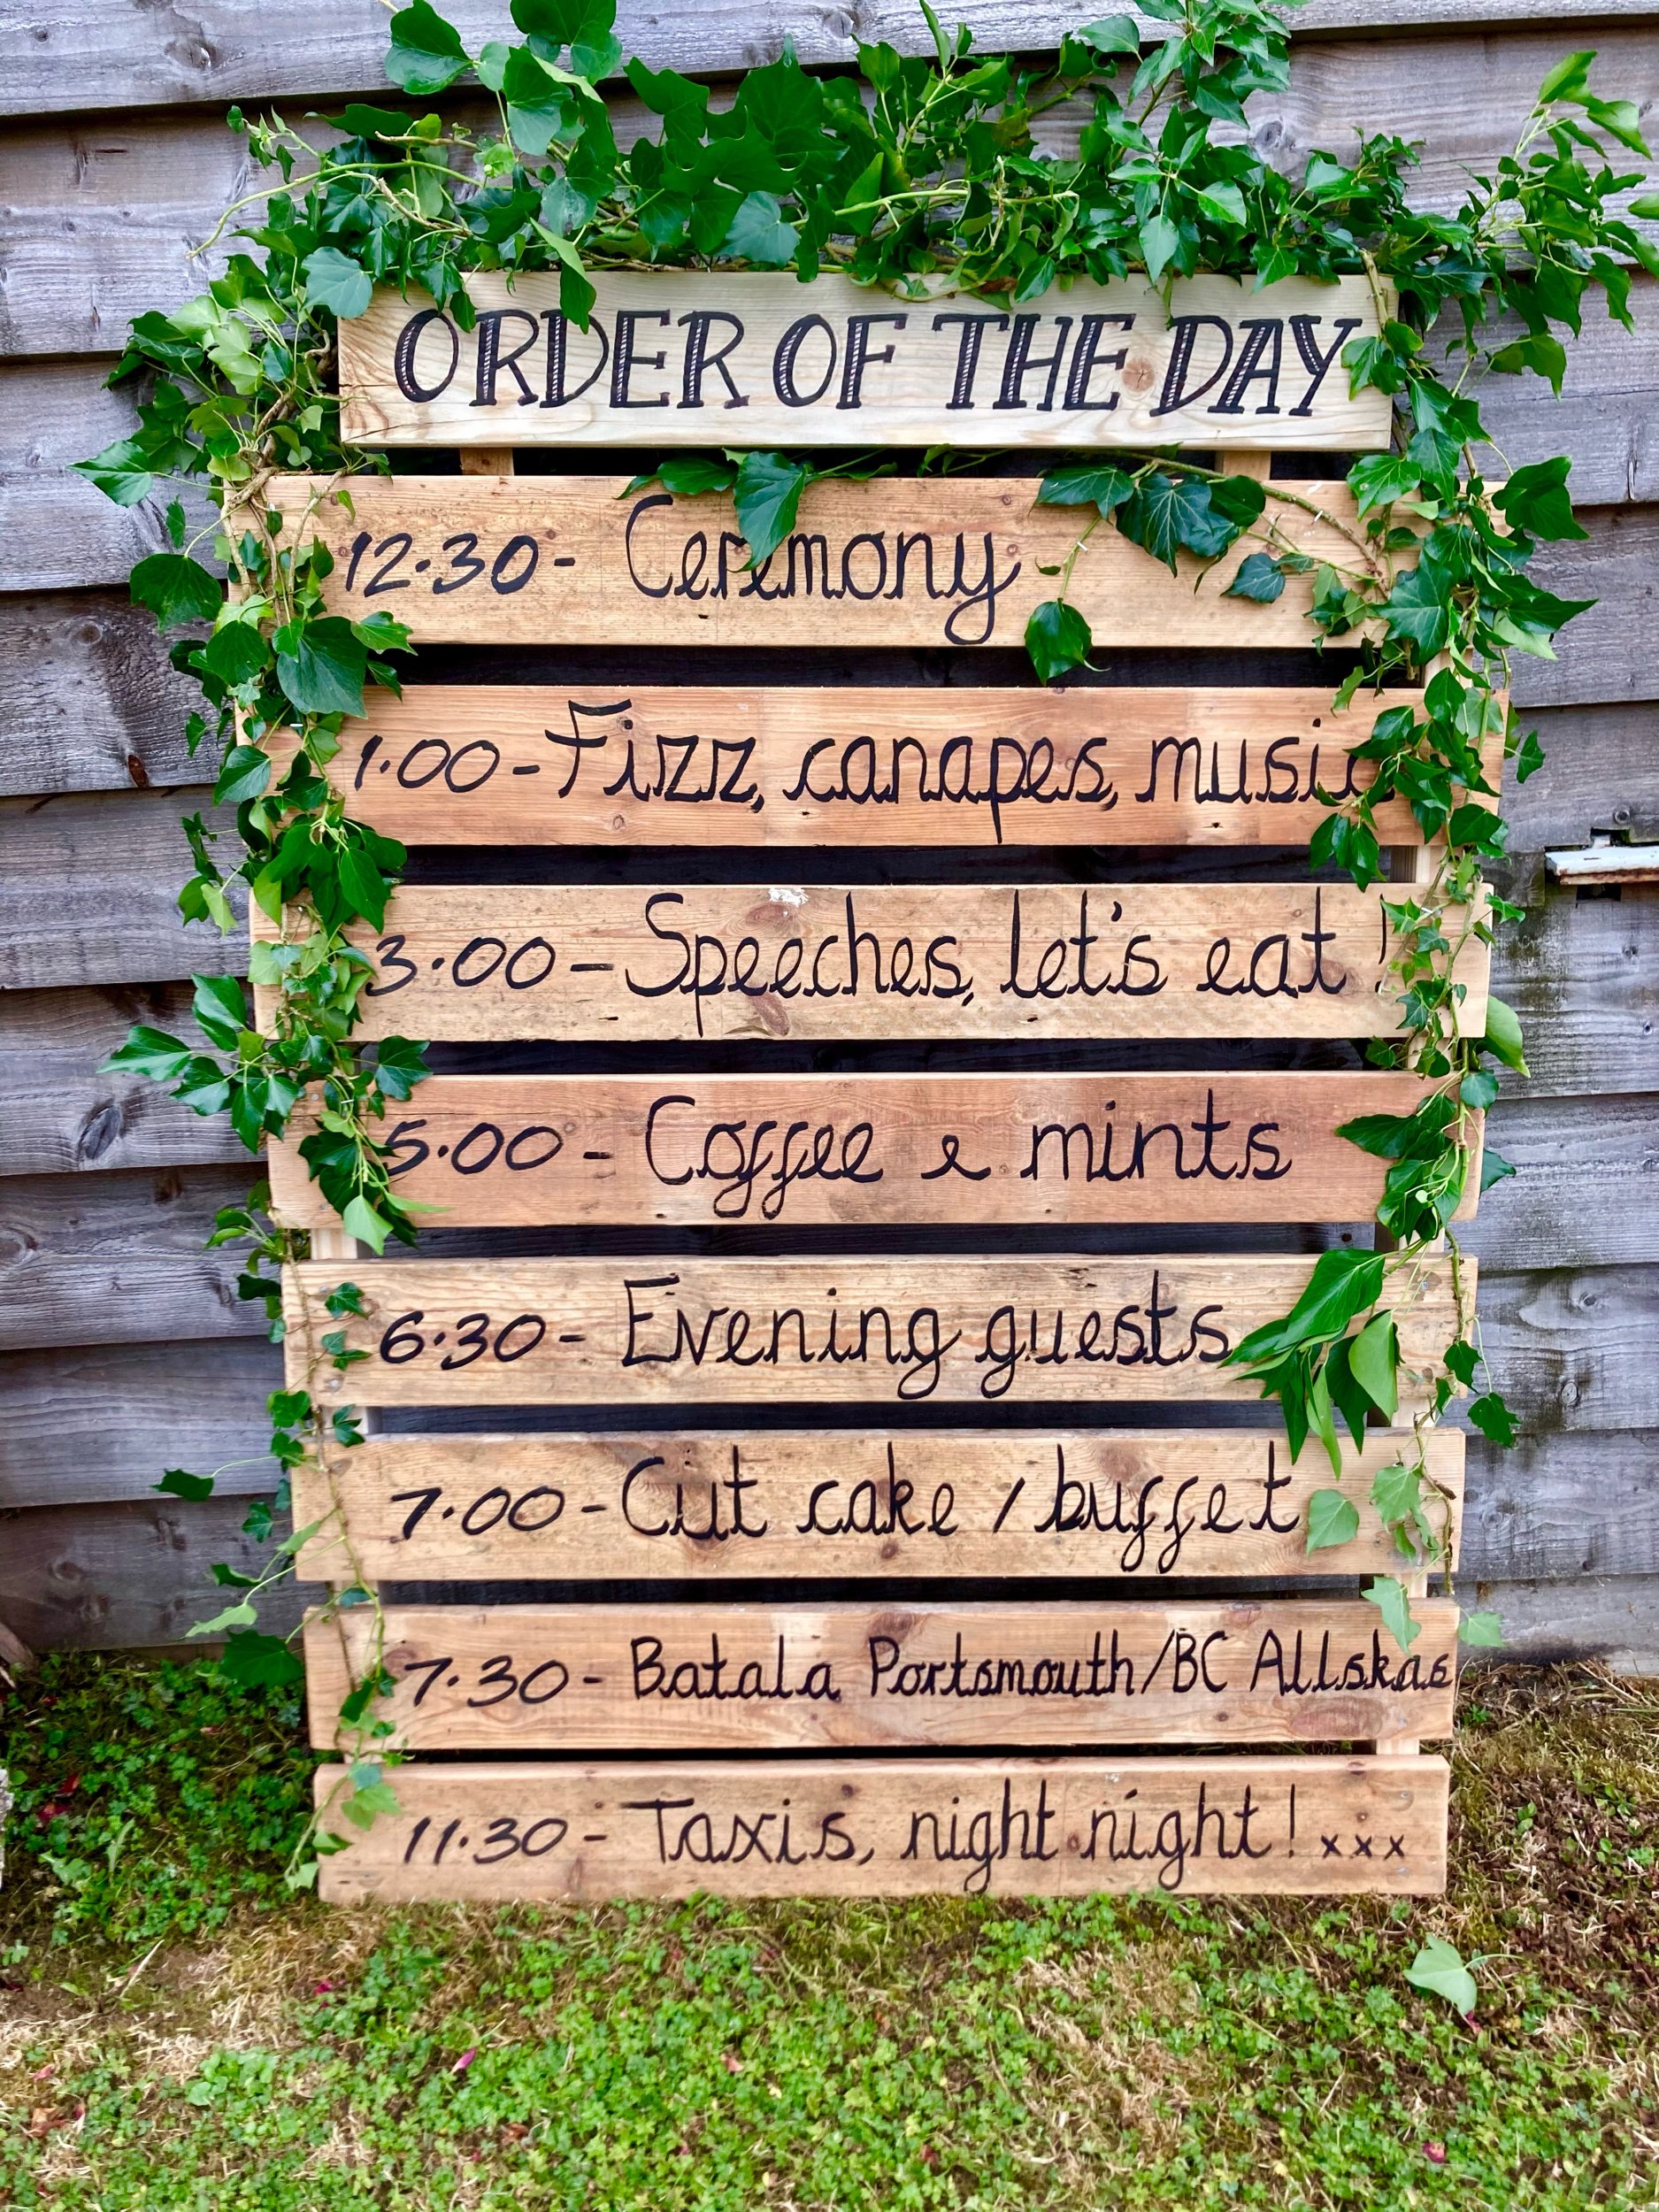 ORDER OF THE DAY
12.30 - Ceremony
1.00 - Fizz, canapes, music
3.00 - Speeches, let's eat!
5.00 - Coffee & mints
6.30 - Evening guests
7.00 - Cut cake / buffet
7.30 - Batala Portsmouth/BC Allskas
11.30 - Taxis, night night! xxx